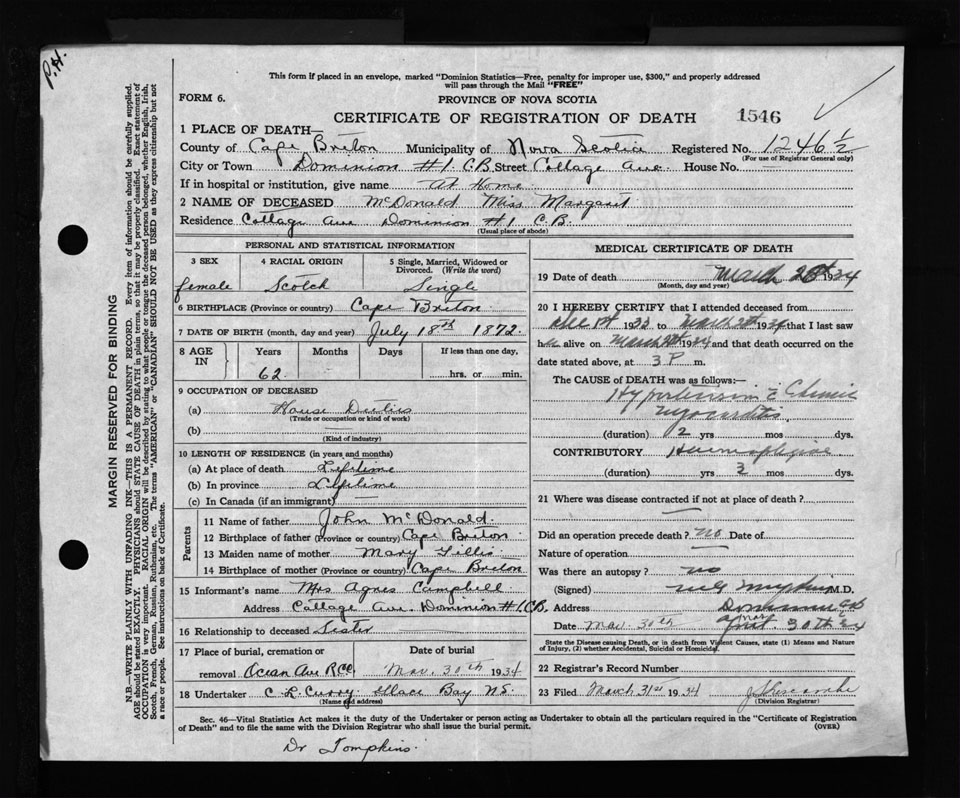 P.H.
This form if placed in an envelope, marked "Dominion Statistics—Free, penalty for improper use, $300," and properly addressed
will pass through the Mail "FREE"
FORM 6.
PROVINCE OF NOVA SCOTIA
CERTIFICATE OF REGISTRATION OF DEATH
1546
1 PLACE OF DEATH—
County of Cape Breton Municipality of Nova Scotia Registered No. 1246½
(For use of Registrar General only)
City or Town Dominion #1 C.B. Street Cottage Ave. House No.
If in hospital or institution, give name At Home
2 NAME OF DECEASED McDonald Miss Margaret
Residence Cottage Ave Dominion #1 C.B.
(Usual place of abode)
PERSONAL AND STATISTICAL INFORMATION
3 SEX 4 RACIAL ORIGIN 5 Single, Married, Widowed or
Divorced. (Write the word)
female Scotch Single
6 BIRTHPLACE (Province or country) Cape Breton
7 DATE OF BIRTH (month, day and year) July 18th 1872.
8 AGE IN Years Months Days If less than one day.
62 hrs. or min.
9 OCCUPATION OF DECEASED
(a) House Duties
(Trade or occupation or kind of work)
(b)
(Kind of industry)
10 LENGTH OF RESIDENCE (in years and months)
(a) At place of death Lifetime
(b) In province Lifetime
(c) In Canada (if an immigrant)
Parents
11 Name of father John McDonald
12 Birthplace of father (Province or country) Cape Breton
13 Maiden name of mother Mary Gillis
14 Birthplace of mother (Province or country) Cape Breton
15 Informant's name Mrs Agnes Campbell
Address Cottage Ave. Dominion #1 C.B.
16 Relationship to deceased Sister
17 Place of burial, cremation or Date of burial
removal Ocean Ave R.C. Mar. 30th 1934
18 Undertaker C. L. Curry Glace Bay N.S.
(Name and address)
MEDICAL CERTIFICATE OF DEATH
19 Date of death March 1934
(Month, day and year)
20 I HEREBY CERTIFY that I attended deceased from
1932 to March 1934 that I last saw
her alive on March 1934 and that death occurred on the
date stated above, at 3 P m.
The CAUSE of DEATH was as follows:—
Hypertension c Chronic
Myocarditis
(duration) 2 yrs mos dys.
CONTRIBUTORY
(duration) yrs 3 mos dys.
21 Where was disease contracted if not at place of death?
Did an operation precede death? no Date of
Nature of operation
Was there an autopsy? no
(Signed) M.D.
Address Dominion
Date Mar 30th
State the Disease causing Death, or in death from Violent Causes, state (1) Means and Nature
of Injury, (2) whether Accidental, Suicidal or Homicidal.
22 Registrar's Record Number
23 Filed March 31st 1934
(Division Registrar)
Sec. 46—Vital Statistics Act makes it the duty of the Undertaker or person acting as Undertaker to obtain all the particulars required in the "Certificate of Registration
of Death" and to file the same with the Division Registrar who shall issue the burial permit. (OVER)
Dr Tompkins.
MARGIN RESERVED FOR BINDING
N.B.—WRITE PLAINLY WITH UNFADING INK—THIS IS A PERMANENT RECORD. Every item of information should be carefully supplied.
AGE should be stated EXACTLY. PHYSICIANS should STATE CAUSE OF DEATH in plain terms, so that it may be properly classified. Exact statement of
OCCUPATION is very important. RACIAL ORIGIN will be described by stating to what people or tongue the deceased person belonged, whether English, Irish,
Scotch, French, German, Russian, Ruthenian, etc. The terms "AMERICAN" or "CANADIAN" SHOULD NOT BE USED as they express citizenship but not
a race or people. See instructions on back of Certificate.